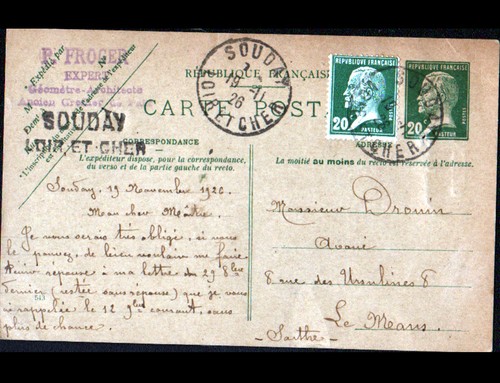 R. FROGER
EXPERT
Géomètre-Architecte
Ancien Greffier de Paix
SOUDAY
LOIR-ET-CHER
Expédié par
SOUDAY
19 -11
26
LOIR ET CHER
RÉPUBLIQUE FRANÇAISE
CARTE POSTALE
RÉPUBLIQUE FRANÇAISE
20 c
PASTEUR
POSTES
RÉPUBLIQUE FRANÇAISE
20 c
PASTEUR
CORRESPONDANCE
L'expéditeur dispose, pour la correspondance,
du verso et de la partie gauche du recto.
ADRESSE
La moitié au moins du recto est réservée à l'adresse.
Souday, 19 Novembre 1926
Mon cher Maître,
Je vous serais très obligé, si vous
le pouvez, de bien vouloir me faire
tenir réponse à ma lettre du 29 8bre
dernier (restée sans réponse) que je vous
ai rappelée le 12 9bre courant, sans
plus de chance.
543
Monsieur Drouin
Avoué
8 rue des Ursulines 8
Le Mans
- Sarthe -